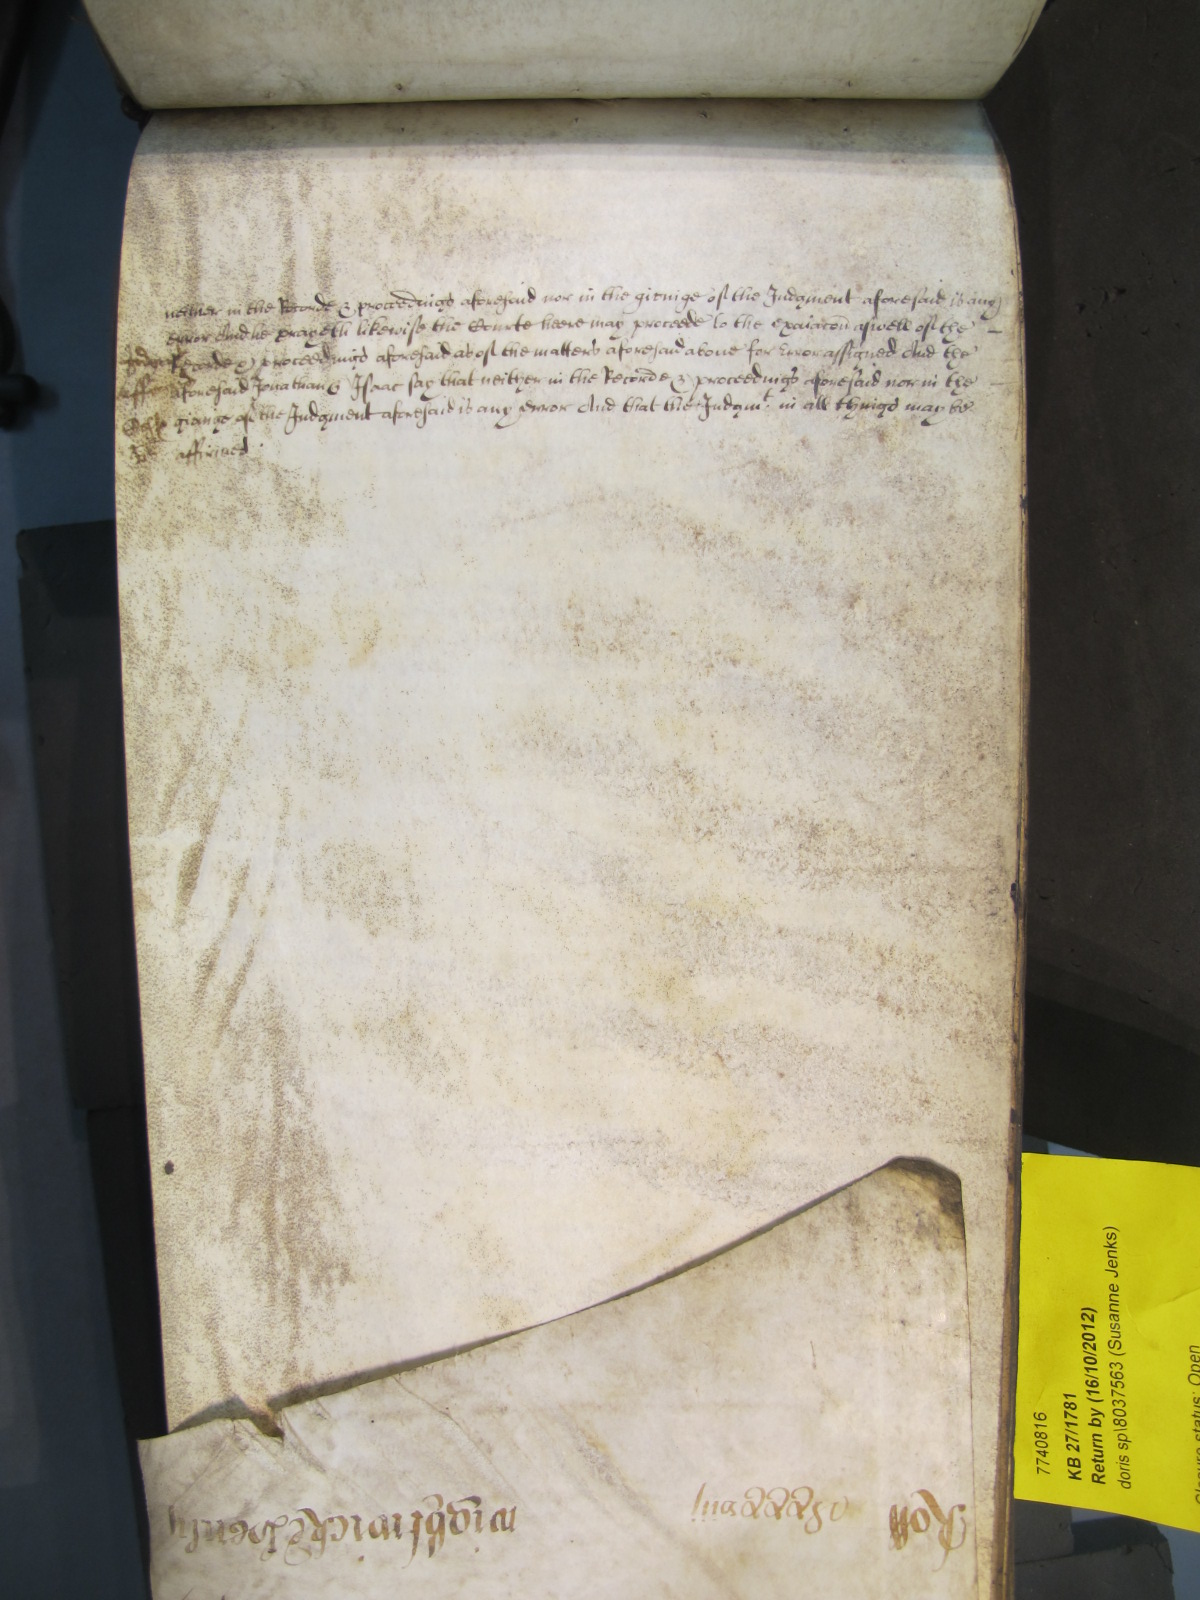 neither in the Recorde & proceedings aforesaid nor in the giveinge of the Judgment aforesaid is any
error And he prayeth likewise the Courte heere may proceede to the exaiacon aswell of the
Recorde & proceedings aforesaid as of the matters aforesaid above for Error assigned And the
aforesaid Jonathan & Isaac say that neither in the Recorde & proceedings aforesaid nor in the
giveinge of the Judgment aforesaid is any Error And that the Judgmt in all things may be
affirmed
Roll
7740816
KB 27/1781
Return by (16/10/2012)
doris sp\8037563 (Susanne Jenks)
Closure status: Open